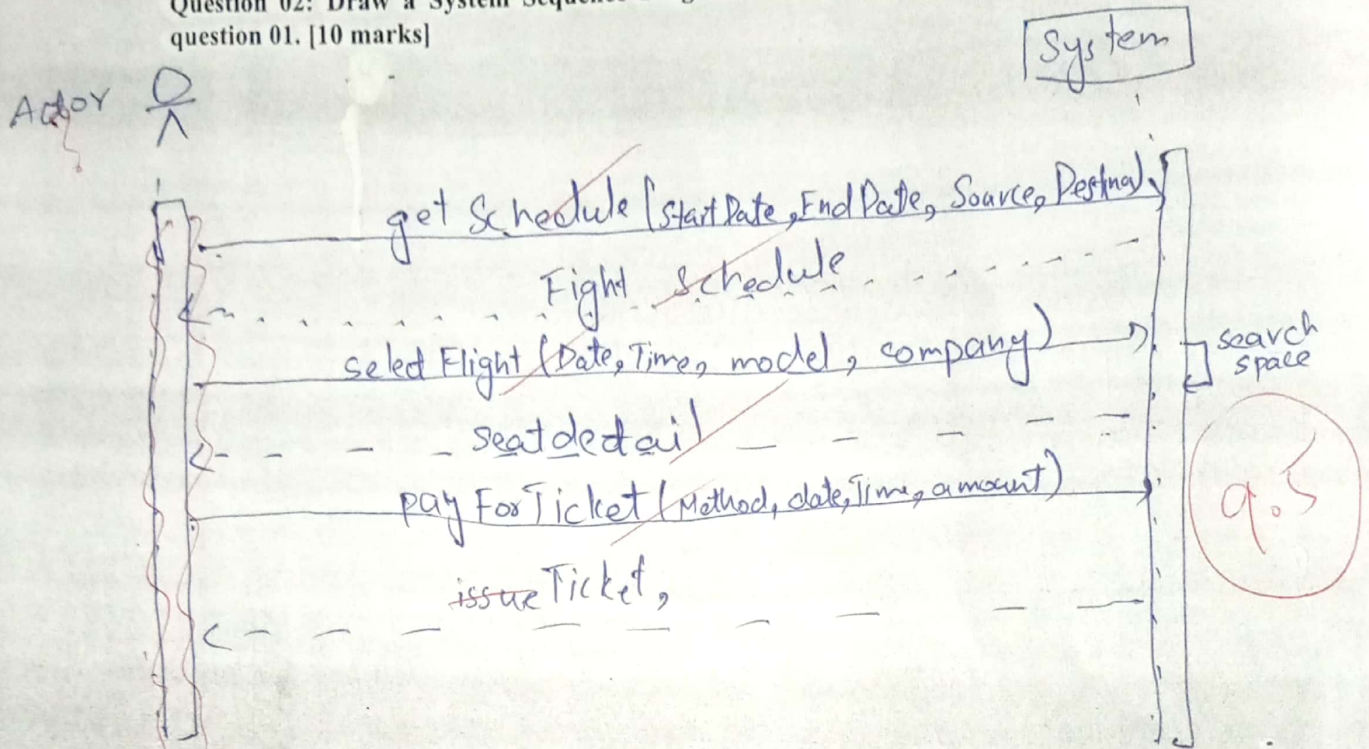 question 01. [10 marks]
System
Actor
get Schedule (Start Date, End Date, Source, Destina)
Fight Schedule
select Flight (Date, Time, model, company)
search
space
seat detail
pay For Ticket (Method, date, Time, amount)
9.5
issue Ticket,